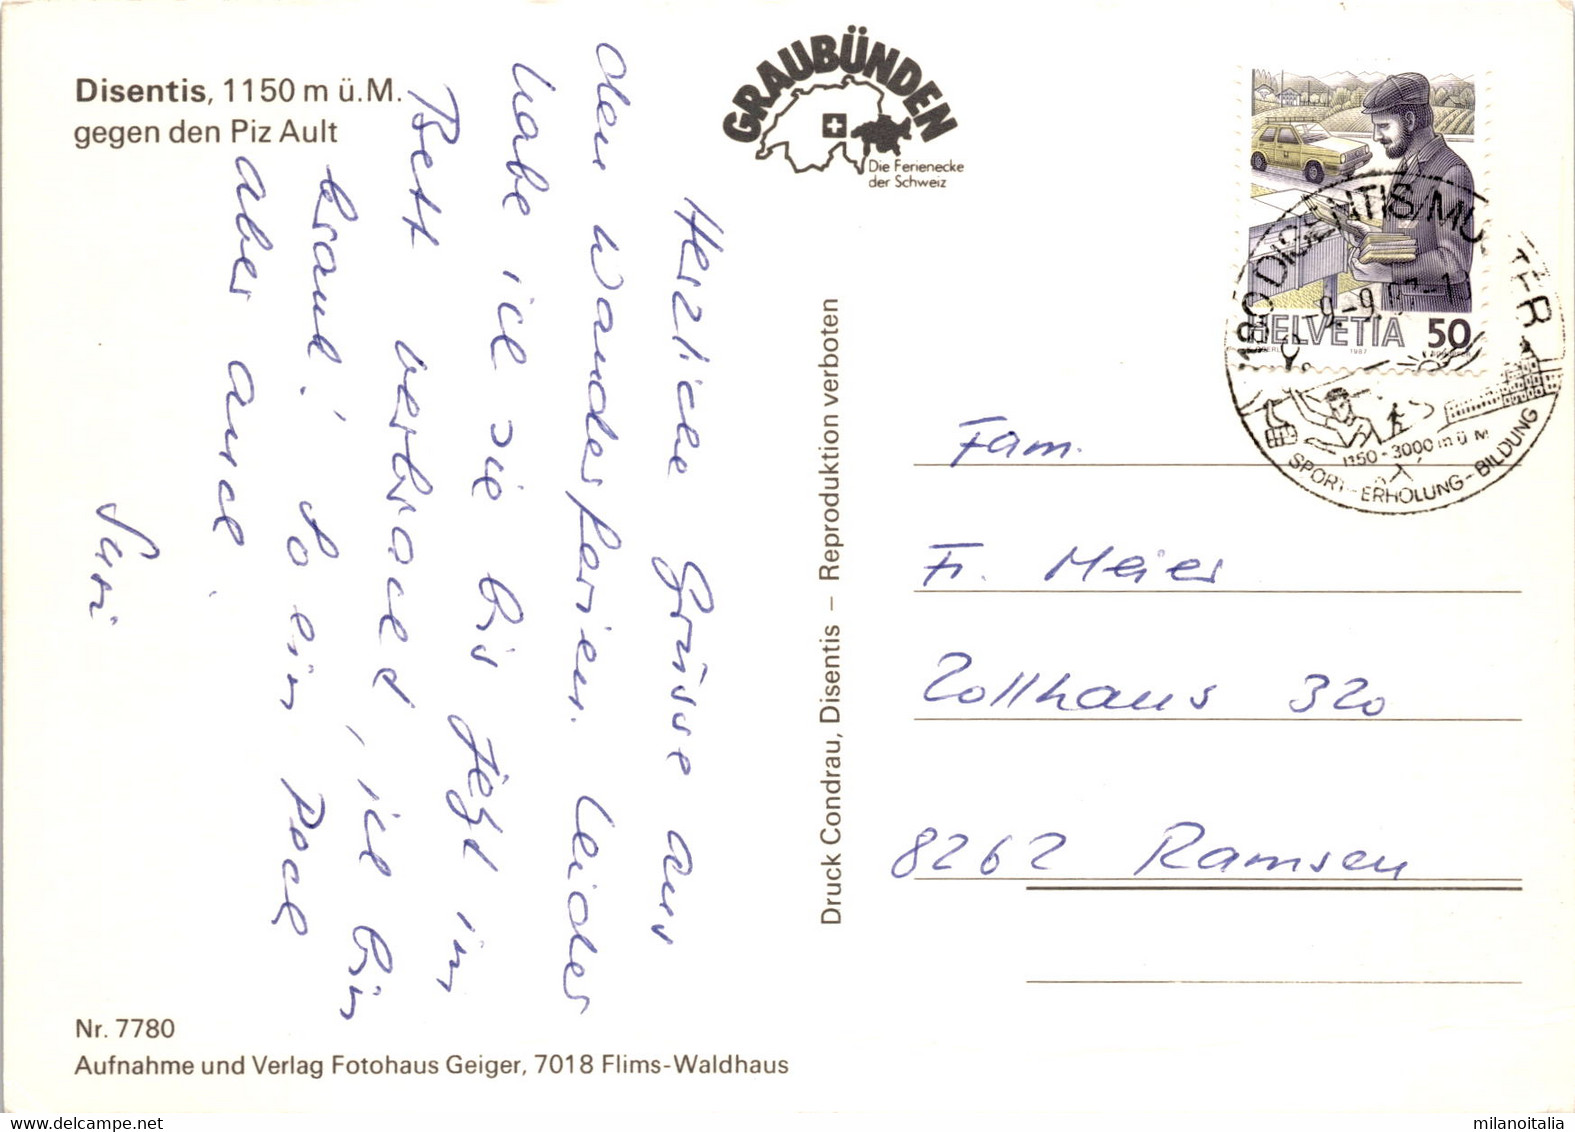 Disentis, 1150 m ü.M.
gegen den Piz Ault
GRAUBÜNDEN
Die Ferienecke
der Schweiz
Herzliche Grüsse aus
den Wanderferien. Leider
habe ich sie bis jetzt im
Bett verbracht, ich bin
krank! So ein Pech
aber auch!
Susi
Druck Condrau, Disentis – Reproduktion verboten
HELVETIA 50
1987
DISENTIS/MUSTÉR
-9.-9.87-
1150-3000 m ü M
SPORT-ERHOLUNG-BILDUNG
Fam.
Fr. Meier
Zollhaus 320
8262 Ramsen
Nr. 7780
Aufnahme und Verlag Fotohaus Geiger, 7018 Flims-Waldhaus
milanoitalia